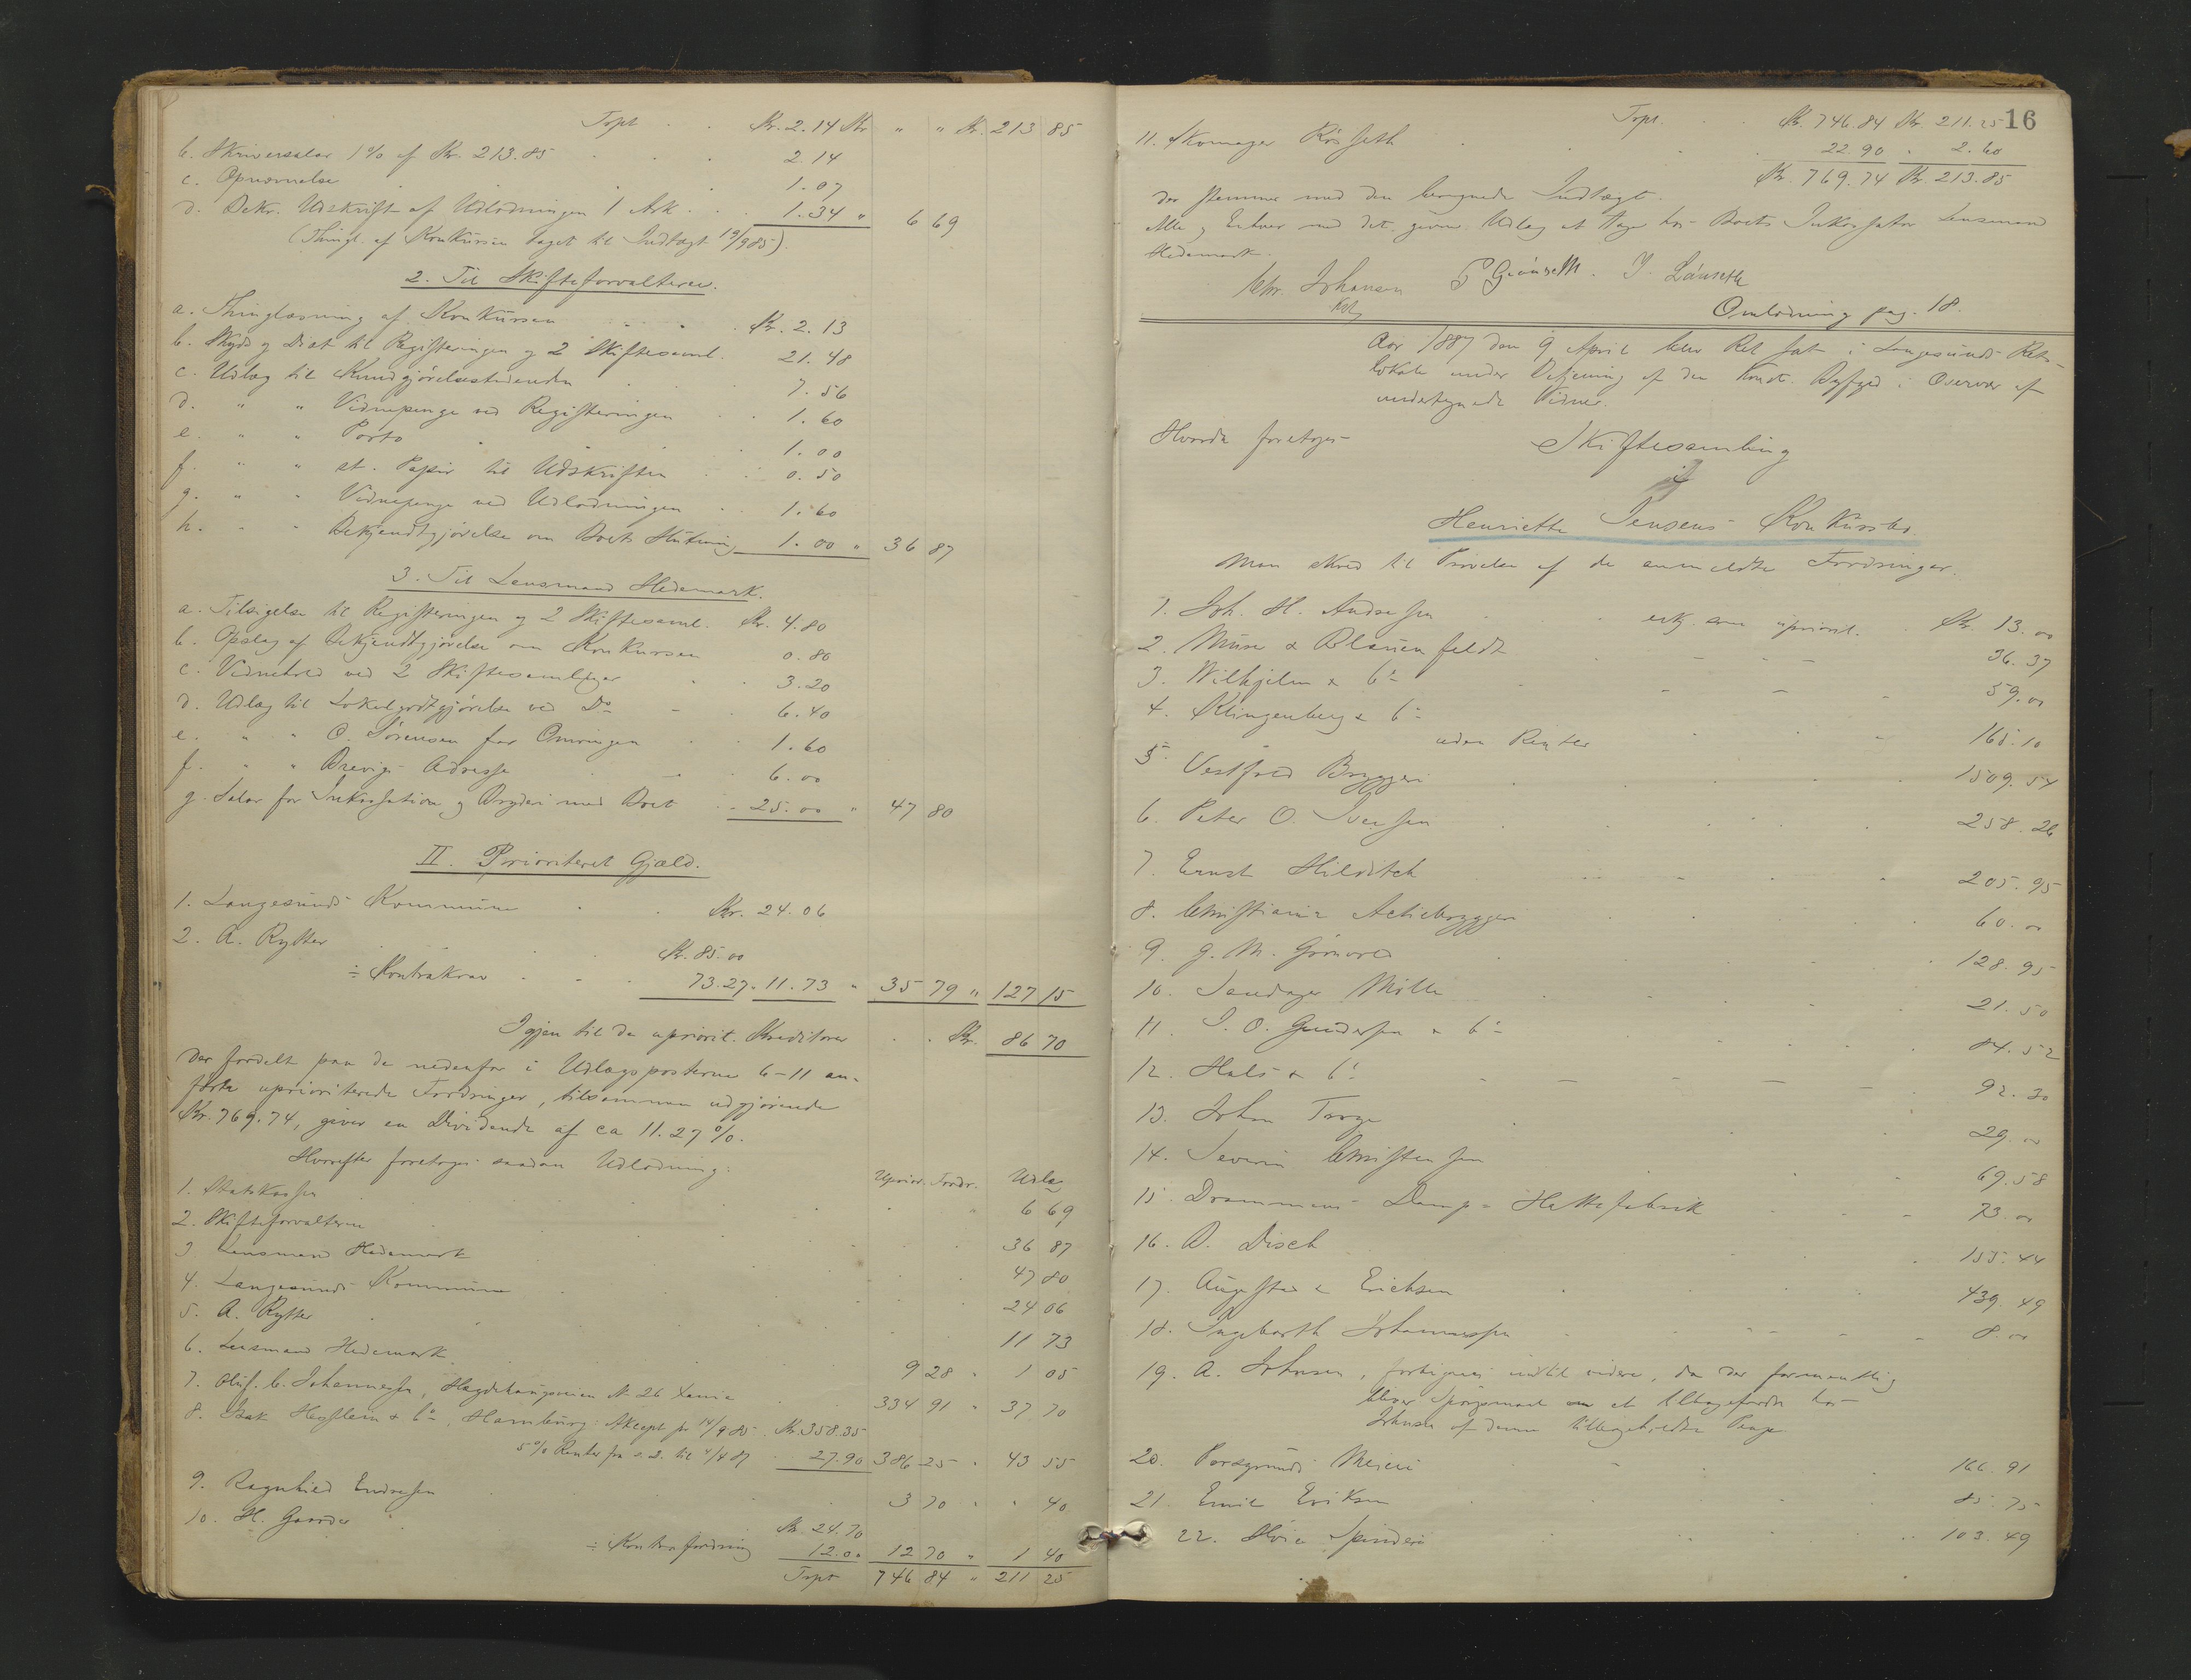 Trspt . . Kr. 2.14 Kr. " " Kr. 213 85
b. Skriversalær 1% af Kr. 213.85 . . . 2.14
c. Opnævnelse . . . 1.07
d. Bekr. Udskrift af Udlodningen 1 Ark . . 1.34 " 6 69
(Thingl. af Konkursen taget til Indtægt 19/9 85).
2. Til Skifteforvalteren.
a. Thinglæsning af Konkursen . . . Kr. 2.13
b. Skyds og Diæt til Registeringen og 2 Skiftesaml. 21.48
c. Udlæg til Kundgjørelsestidenden . . 7.56
d. " " Vidnepenge ved Registeringen . . 1.60
e. " " Porto . . . 1.00
f. " " st. Papir til Udskriften . . 0.50
g. " " Vidnepenge ved Udlodningen . . 1.60
h. " " Bekjendtgjørelse om Boets Slutning 1.00 " 36 87
3. Til Lensmand Hedemark.
a. Tilsigelse til Registeringen og 2 Skiftesaml. Kr. 4.80
b. Opslag af Bekjendtgjørelse om Konkursen 0.80
c. Vidnehold ved 2 Skiftesamlinger . . 3.20
d. Udlæg til Lokalgodtgjørelse ved Do . . 6.40
e. " " O. Sørensen for Omringen . . 1.60
f. " " Brevigs Adresse . . 6.00
g. Salær for Inkassation og Bryderi med Boet . . 25.00 " 47 80
II. Prioriteret Gjæld.
1. Langesunds Kommune . . Kr. 24.06
2. A. Rytter . . Kr. 85.00
÷ Kontrakrav . . . 73.27 " 11.73 " 35 79 " 127 15
Igjen til de upriorit. Kreditorer . . Kr. 86 70
der fordelt paa de nedenfor i Udlægsposterne 6-11 an-
førte uprioriterede Fordringer, tilsammen udgjørende
Kr. 769.74, giver en Dividende af ca 11.27 %.
Hvorefter foretoges saadan Udlodning:
Uprior. Fordr. Udlæg
1. Statskassen . . 6 69
2. Skifteforvalteren . . 36 87
3. Lensmand Hedemark . . 47 80
4. Langesunds Kommune . . 24 06
5. A. Rytter . . 11 73
6. Lensmand Hedemark . . 9 28 " 1 05
7. Oluf C. Johannessen, Hegdehaugsveien No 26 Xania . 334 91 " 37 70
8. Isak & Co, Hamburg: Akcept pr 14/9 85 Kr. 358.35
5% Renter fra s. D. til 4/4 87 . 27.90 386 25 " 43 55
9. Ragnhild Endresen . . 3 70 " " 40
10. H. Gaarder . . Kr. 24.70
÷ Kontrafordring 12.00 12 70 " 1 40
Trspt 746 84 " 211 25
16
Trspt. . . Kr. 746.84 Kr. 211.25
11. Skomager Røsseth . . . 22.90 " 2.60
Kr. 769.74 Kr. 213.85
der stemmer med den beregnede Indtægt.
Alle og Enhver med det givne Udlæg at tage hos Boets Inkassator Lensmand
Hedemark.
Chr. Johansen
Kst
P Grønseth. J. Lønseth
Omlodning pag. 18.
Aar 1887 den 9 April blev Ret sat i Langesunds Rets-
lokale under Betjening af den Konst. Byfoged i Overvær af
undertegnede Vidner.
Hvorda foretoges
Skiftesamling
i
Henriette Jensens Konkursbo.
Man skred til Prøvelse af de anmeldte Fordringer.
1. Joh. H. Andresen . . erkj. som upriorit. . Kr. 13.00
2. Muus & Blauenfeldt . . 36.37
3. Wilhjelm & Co . . 59.00
4. Klingenberg & Co uden Renter . . 168.10
5. Vestfold Bryggeri . . 1509.54
6. Peter O. Iversen . . 258.26
7. Ernst Hilditch . . 205.95
8. Christiania Actiebryggeri . . 60.00
9. G. M. Grønvold . . 128.95
10. Sandager Mølle . . 21.50
11. J. O. Gundersen & Co . . 84.52
12. Hals & Co . . 92.30
13. Johan Torge . . 29.00
14. Severin Christensen . . 69.58
15. Drammens Damp-Hattefabrik . . 73.00
16. D. Disch . . 155.44
17. Augestad & Erichsen . . 439.49
18. Ingebarth Johannessen . . 8.00
19. A. Johnsen, forbigaaes indtil videre, da der formentlig
bliver Spørgsmaal om at tilbagefordre hos
Johnsen af denne tilbageholdte Penge
20. Porsgrunds Meieri . . 166.91
21. Emil Eriksen . . 85.75
22. Høie Spinderi . . 103.49